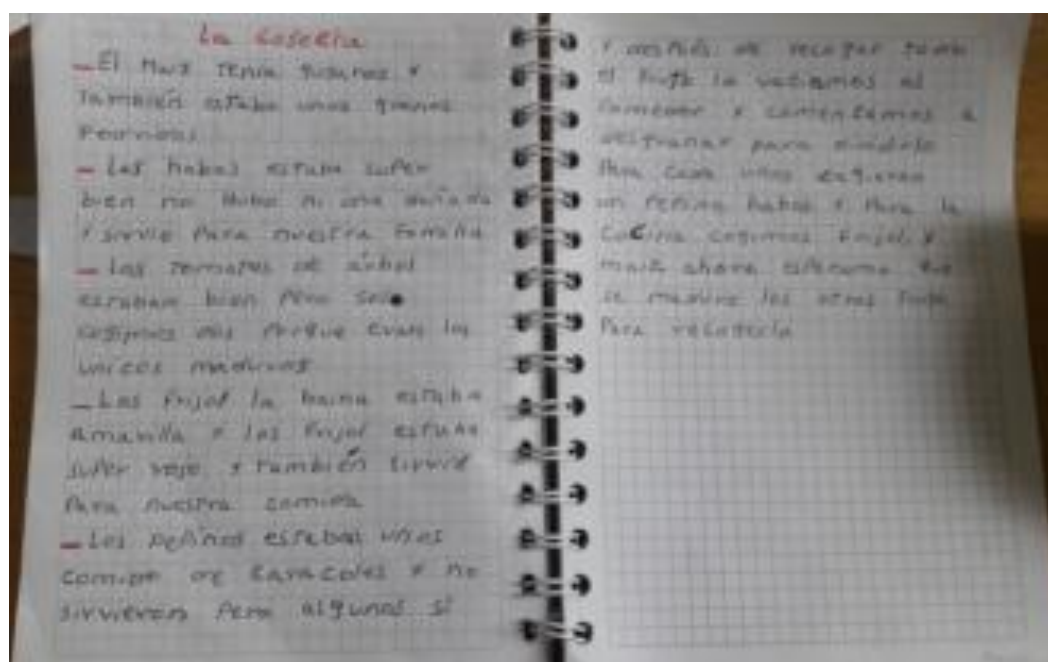 La Cosecha
- El Maiz Tenia gusanos y
También estaba unos granos
Podridos
- Las habas estaba super
bien no hubo ni una dañada
y sirvió Para nuestra familia
- Los tomates de árbol
estaban bien Pero solo
cogimos dos Porque eran los
unicos maduros
- Los frijol la baina estaba
amarilla y los frijol estaba
super rojo y también sirvió
Para nuestra comida
- Los pepinos estaban unos
comido de caracoles y no
sirvieron Pero algunos si
y después de recoger todo
el fruto la vaciamos al
comedor y comenzamos a
desgranar para
Para cada unos
un Pepino habas y Para la
Cocina cogimos frijol y
maiz ahora que
se madure los otros
Para recogerla